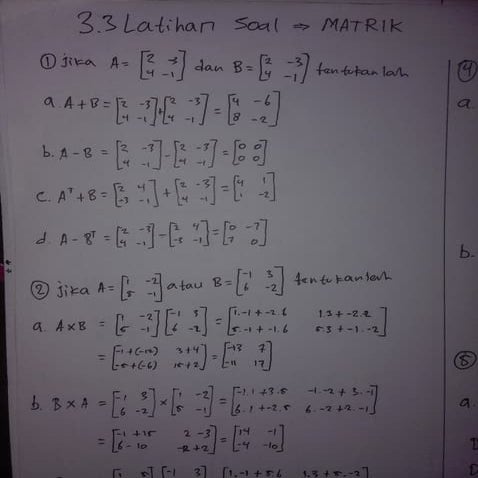 3.3 Latihan Soal ⇒ MATRIK
① jika A = [2 -3; 4 -1] dan B = [2 -3; 4 -1] tentukanlah
④
a. A + B = [2 -3; 4 -1] + [2 -3; 4 -1] = [4 -6; 8 -2]
a.
b. A - B = [2 -3; 4 -1] - [2 -3; 4 -1] = [0 0; 0 0]
c. Aᵀ + B = [2 4; -3 -1] + [2 -3; 4 -1] = [4 1; 1 -2]
d. A - Bᵀ = [2 -3; 4 -1] - [2 4; -3 -1] = [0 -7; 7 0]
b.
② jika A = [1 -2; 5 -1] atau B = [-1 3; 6 -2] tentukanlah
a. A x B = [1 -2; 5 -1] [-1 3; 6 -2] = [1.-1 + -2.6 1.3 + -2.2; 5.-1 + -1.6 5.3 + -1.-2]
= [-1 + (-12) 3 + 4; -5 + (-6) 15 + 2] = [-13 7; -11 17]
⑤
b. B x A = [-1 3; 6 -2] x [1 -2; 5 -1] = [-1.1 + 3.5 -1.-2 + 3.-1; 6.1 + -2.5 6.-2 + -2.-1]
a.
= [-1 + 15 2 - 3; 6 - 10 -2 + 2] = [14 -1; -4 -10]